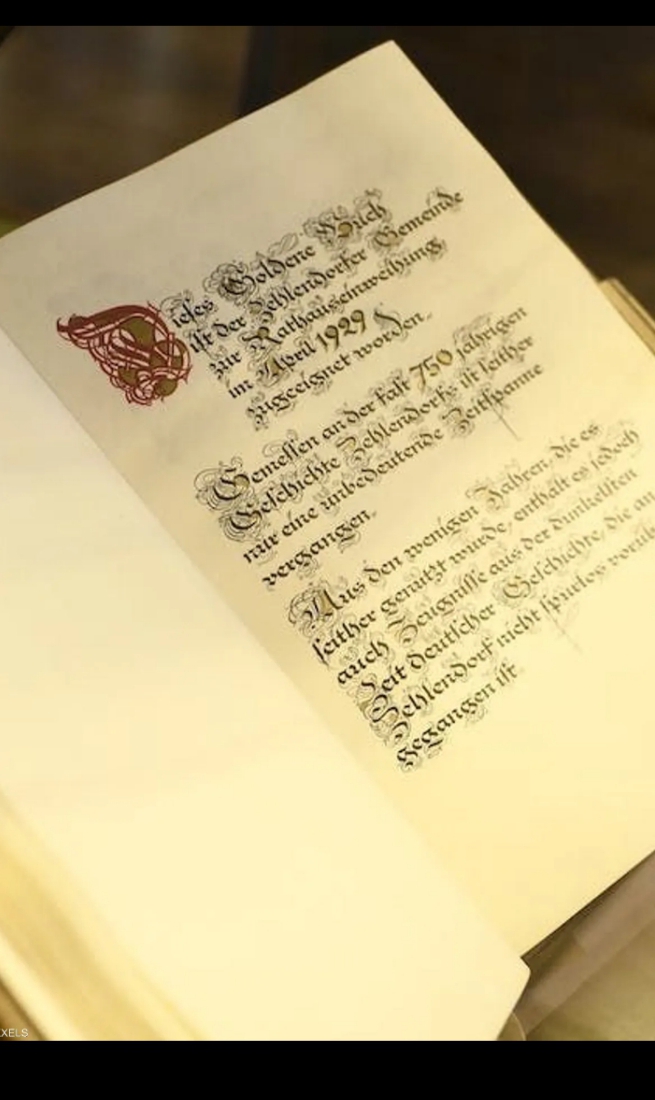 Dieses Goldene Buch
ist der Zehlendorfer Gemeinde
zur Rathauseinweihung
im April 1929
zugeeignet worden.
Gemessen an der fast 750 jährigen
Geschichte Zehlendorfs ist seither
nur eine unbedeutende Zeitspanne
vergangen.
Aus den wenigen Jahren, die es
seither genutzt wurde, enthält es jedoch
auch Zeugnisse aus der dunkelsten
Zeit deutscher Geschichte, die an
Zehlendorf nicht spurlos vorüb
gegangen ist.
XELS